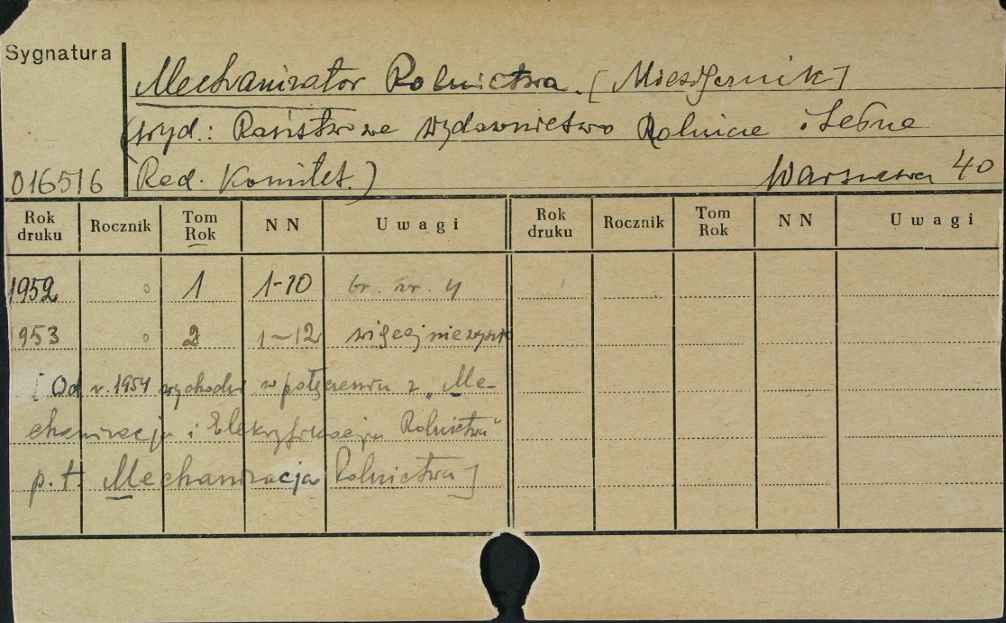 Sygnatura
Mechanizator Rolnictwa. [Miesięcznik]
(wyd.: Państwowe Wydawnictwo Rolnicze i Leśne
016516 Red. Komitet.) Warszawa 40
Rok druku Rocznik Tom Rok NN Uwagi Rok druku Rocznik Tom Rok NN Uwagi
1952 1 1-10 br. nr. 4
1953 2 1-12 więcej nie wysz
[Od r. 1954 wychodzi w połączeniu z „Me-
chanizacja i Elektryfikacja Rolnictwa"
p.t. Mechanizacja Rolnictwa]